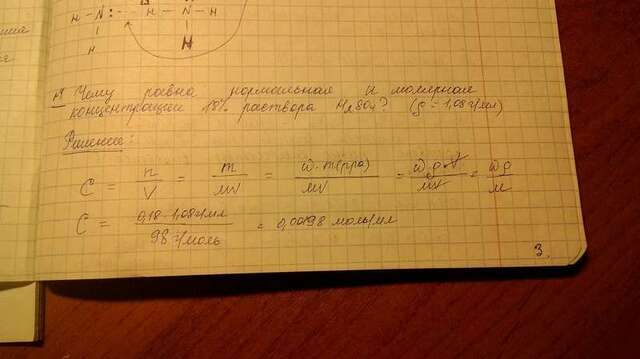 H – N : – H – N – H
H
H
Чему равна нормальная и молярная
концентрации 18% раствора H₂SO₄? (ρ = 1,08 г/мл)
Решение:
C = n/V = m/MV = ω·m(р-ра)/MV = ω ρ V/MV = ω ρ/M
C = 0,18·1,08 г/мл / 98 г/моль = 0,00198 моль/мл
3.